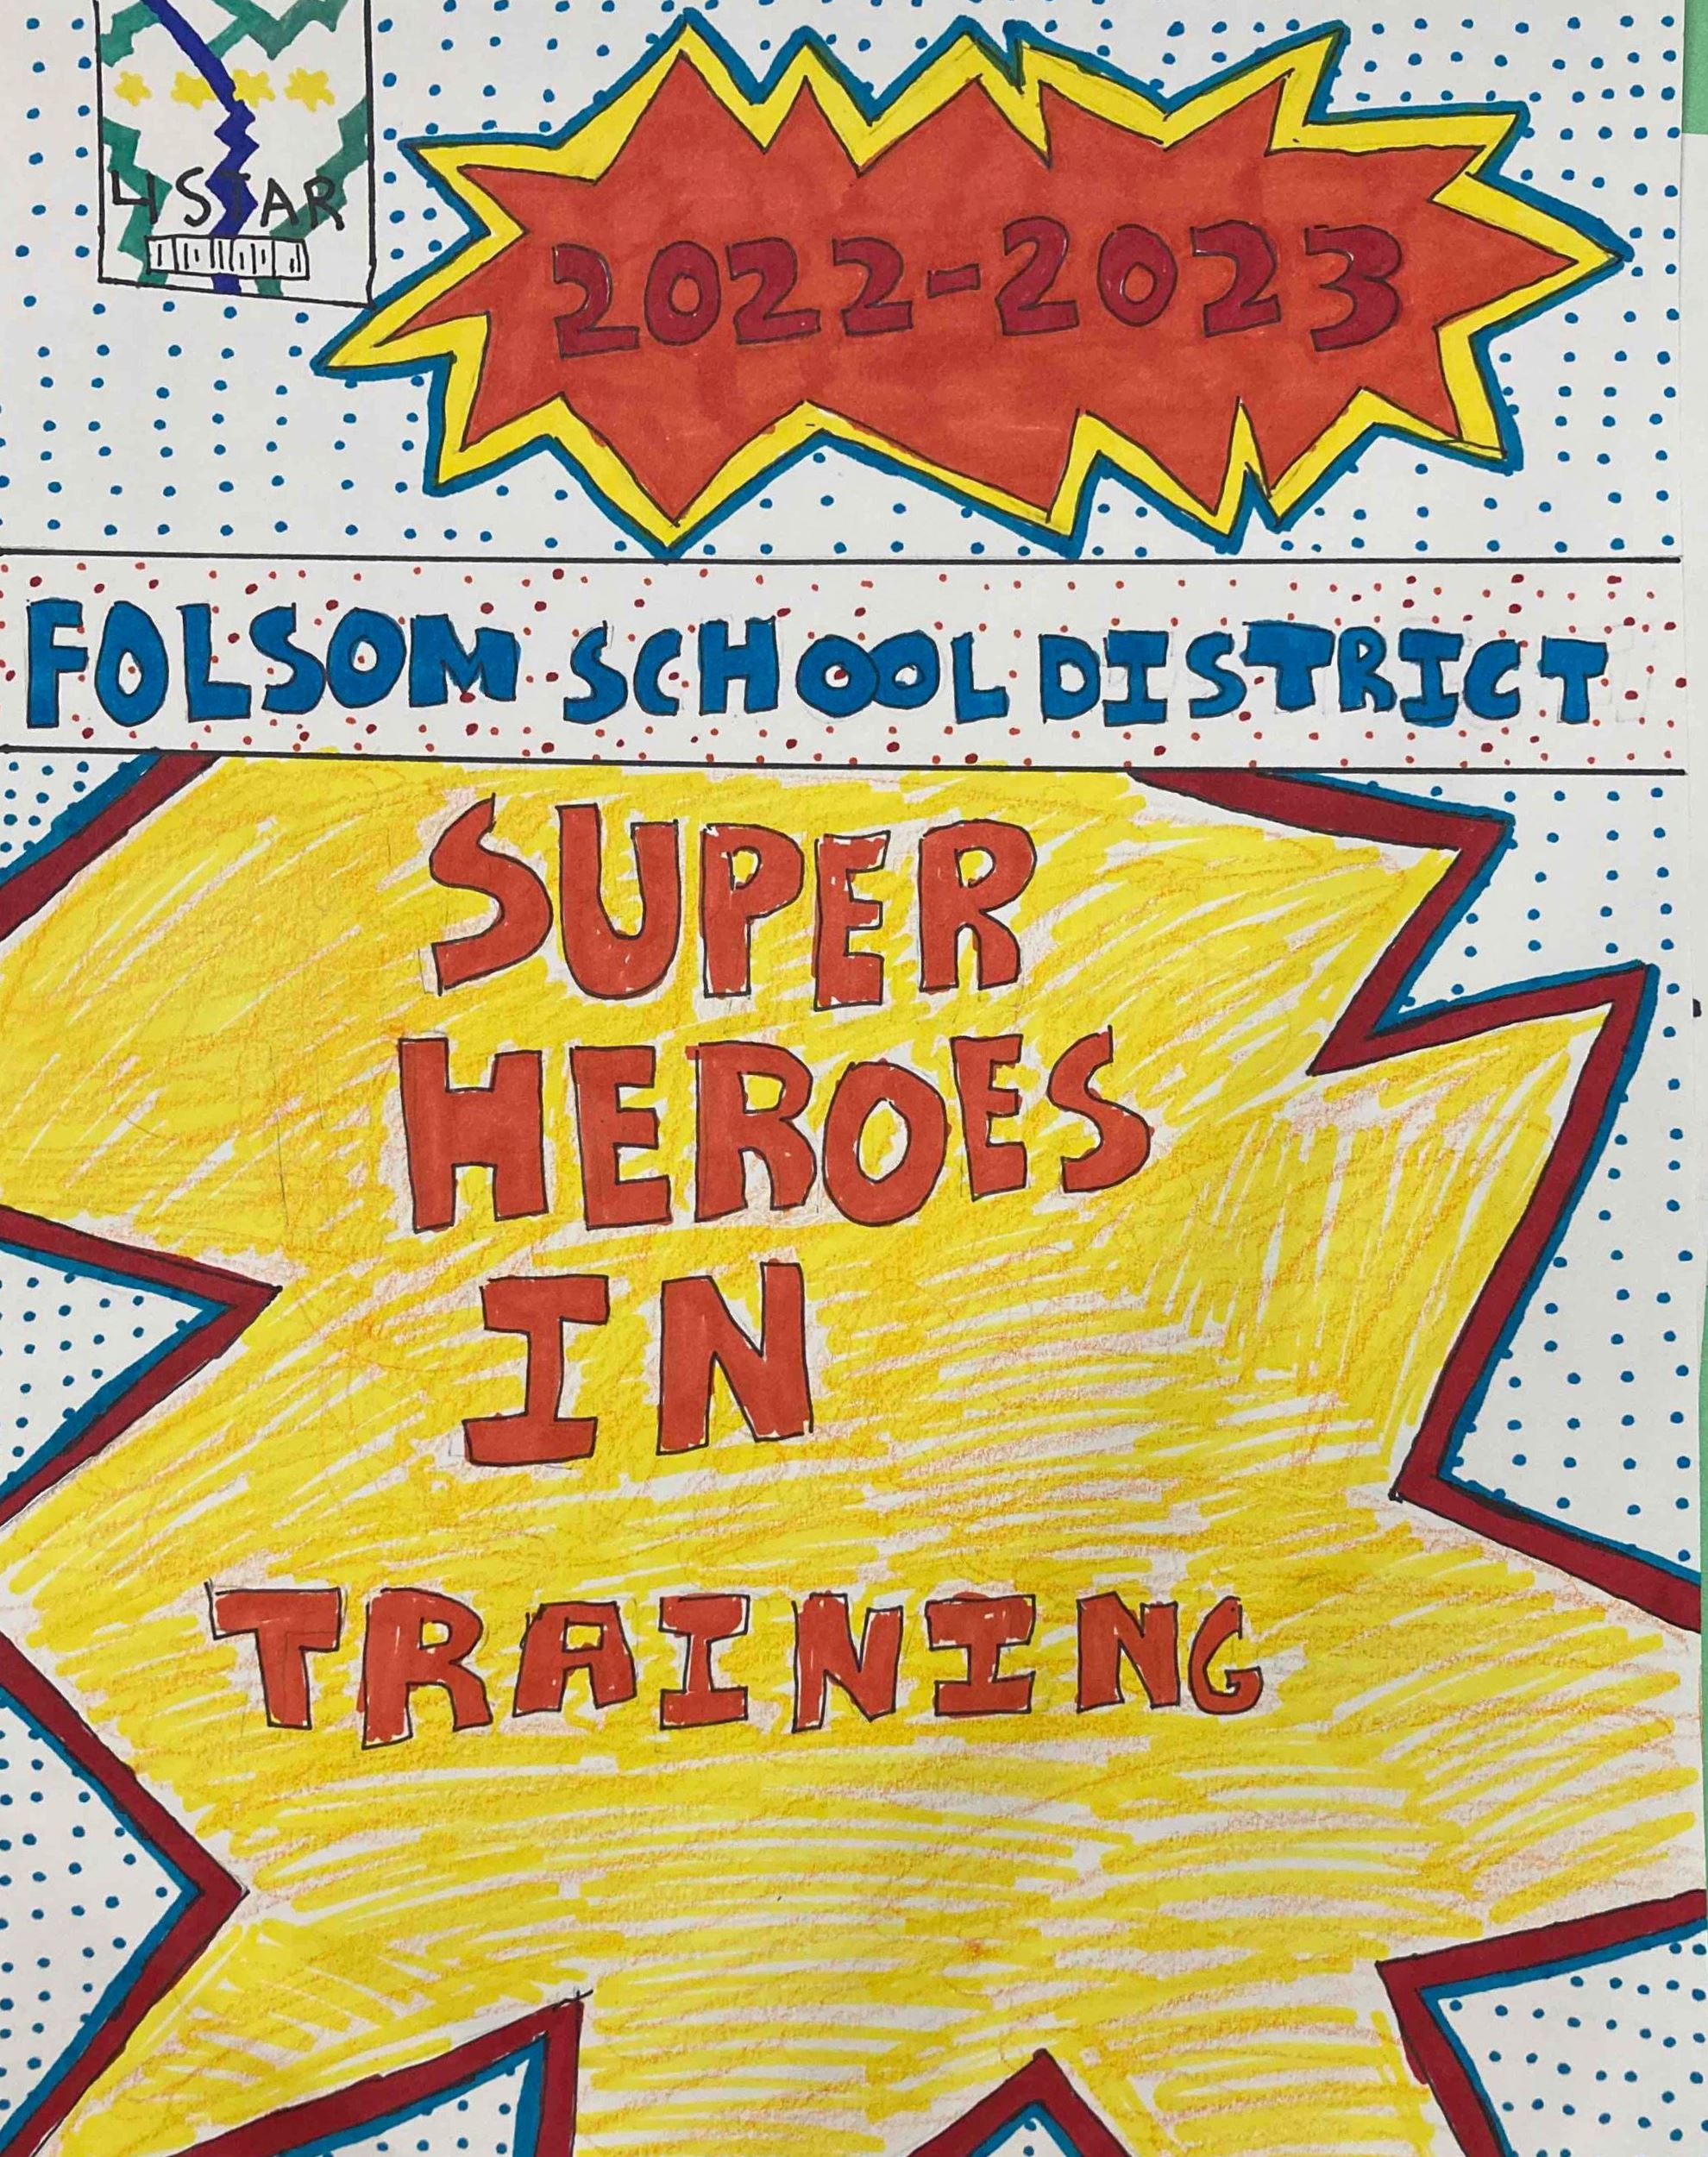 4 STAR
2022-2023
FOLSOM SCHOOL DISTRICT
SUPER
HEROES
IN
TRAINING